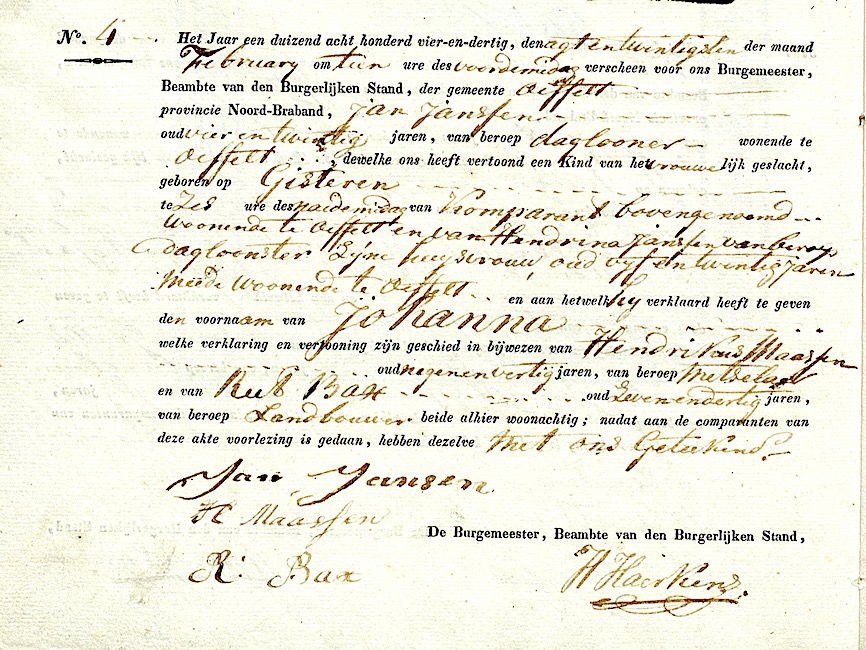 No. 4 Het Jaar een duizend acht honderd vier-en-dertig, den agtentwintigsten der maand
February om tien ure des voordemidag verscheen voor ons Burgemeester,
Beambte van den Burgerlijken Stand, der gemeente Oeffelt
provincie Noord-Braband, Jan Janssen
oud vier en twintig jaren, van beroep daglooner wonende te
Oeffelt, dewelke ons heeft vertoond een Kind van het vrouwelijk geslacht,
geboren op Gisteren
te Zes ure des naidemidag van Komparant bovengenoemd
woonende te Oeffelt en van Hendrina Janssen van beroep
dagloonster Zijne huysvrouw, oud vyf en twintig jaren
meede woonende te Oeffelt en aan hetwelk hy verklaard heeft te geven
den voornaam van Johanna
welke verklaring en vertooning zijn geschied in bijwezen van Hendrikus Maassen
oud negenenvertig jaren, van beroep Metselaar
en van Rut Bax oud Zevenendertig jaren,
van beroep Landbouwer beide alhier woonachtig; nadat aan de comparanten van
deze akte voorlezing is gedaan, hebben dezelve met ons Geteekend
Jan Jansen
H Maassen
De Burgemeester, Beambte van den Burgerlijken Stand,
R: Bax
H Haerkens